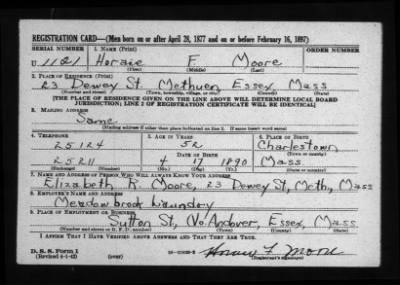 REGISTRATION CARD—(Men born on or after April 28, 1877 and on or before February 16, 1897)
SERIAL NUMBER 1. NAME (Print) ORDER NUMBER
U 1121 Horace F. Moore
(First) (Middle) (Last)
2. PLACE OF RESIDENCE (Print)
23 Dewey St Methuen Essex Mass
(Number and street) (Town, township, village, or city) (County) (State)
[THE PLACE OF RESIDENCE GIVEN ON THE LINE ABOVE WILL DETERMINE LOCAL BOARD
JURISDICTION; LINE 2 OF REGISTRATION CERTIFICATE WILL BE IDENTICAL]
3. MAILING ADDRESS
Same
[Mailing address if other than place indicated on line 2. If same insert word same]
4. TELEPHONE 5. AGE IN YEARS 6. PLACE OF BIRTH
25124 52 Charlestown
DATE OF BIRTH (Town or county)
25211 4 17 1890 Mass.
(Exchange) (Number) (Mo.) (Day) (Yr.) (State or country)
7. NAME AND ADDRESS OF PERSON WHO WILL ALWAYS KNOW YOUR ADDRESS
Elizabeth R. Moore, 23 Dewey St, Meth, Mass
8. EMPLOYER'S NAME AND ADDRESS
Meadowbrook Laundry
9. PLACE OF EMPLOYMENT OR BUSINESS
Sutton St, No. Andover, Essex, Mass.
(Number and street or R. F. D. number) (Town) (County) (State)
I AFFIRM THAT I HAVE VERIFIED ABOVE ANSWERS AND THAT THEY ARE TRUE.
D. S. S. Form 1 Horace F. Moore
(Revised 4-1-42) (over) (Registrant's signature)